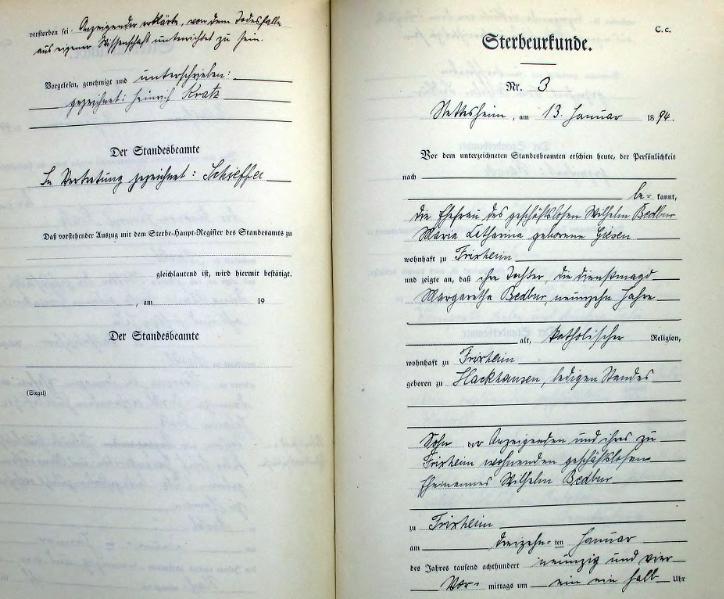 verstorben sei. Anzeigender erklärte, von dem Todesfalle
aus eigener Wissenschaft unterrichtet zu sein.
Vorgelesen, genehmigt und unterschrieben:
gezeichnet: Heinrich Kratz
Der Standesbeamte
In Vertretung gezeichnet: Schieffer
Daß vorstehender Auszug mit dem Sterbe-Haupt-Register des Standesamts zu
gleichlautend ist, wird hiermit bestätigt.
, am 19
Der Standesbeamte
(Siegel)
C. c.
Sterbeurkunde.
Nr. 3
Nettesheim, am 13. Januar 1894.
Vor dem unterzeichneten Standesbeamten erschien heute, der Persönlichkeit
nach
be- kannt,
die Ehefrau des geschäftslosen Wilhelm Bedbur
Maria Catharina geborene Giesen
wohnhaft zu Frixheim
und zeigte an, daß ihre Tochter, die Dienstmagd
Margaretha Bedbur, neunzehn Jahre
alt, katholischer Religion,
wohnhaft zu Frixheim
geboren zu Hackhausen, ledigen Standes
Anzeigenden und ihres zu
Frixheim wohnenden geschäftslosen
Ehemannes Wilhelm Bedbur
zu Frixheim
am dreizehnten Januar
des Jahres tausend achthundert neunzig und vier
Vor- mittags um ein ein halb Uhr